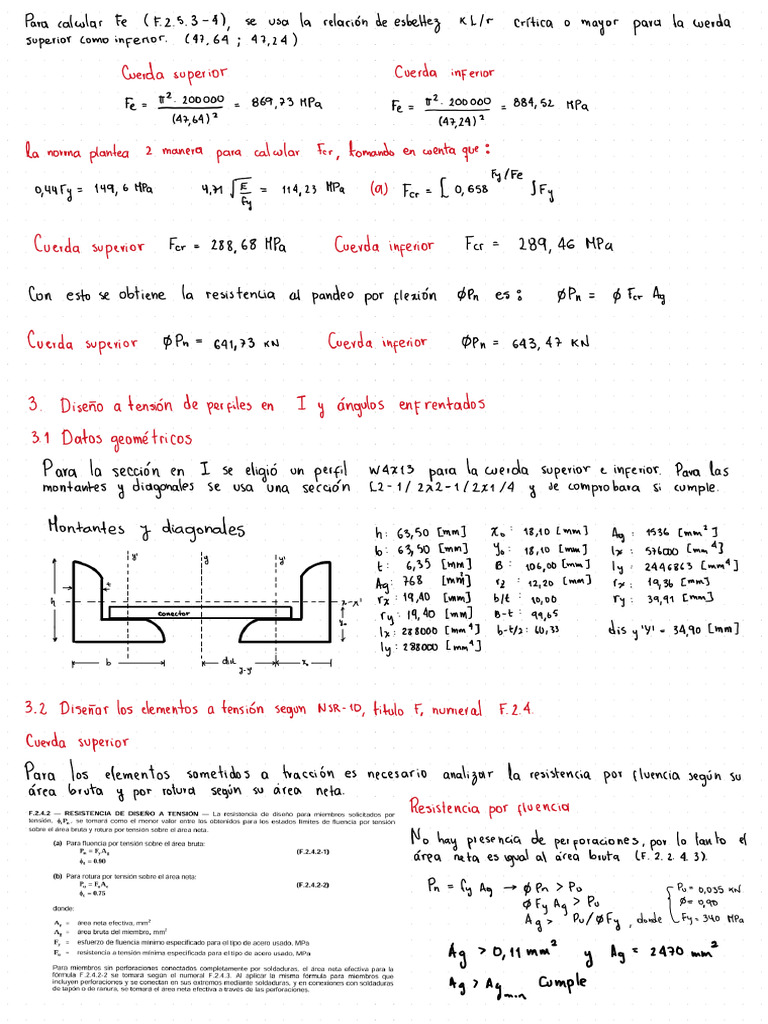 Para calcular Fe (F.2.5.3-4), se usa la relación de esbeltez KL/r crítica o mayor para la cuerda
superior como inferior. (47,64 ; 47,24)
Cuerda superior
Cuerda inferior
Fe = π². 200000 / (47,64)² = 869,73 MPa
Fe = π². 200000 / (47,24)² = 884,52 MPa
La norma plantea 2 manera para calcular Fcr, tomando en cuenta que:
0,44Fy = 149,6 MPa 4,71 √E/Fy = 114,23 MPa (a) Fcr = [0,658^Fy/Fe]Fy
Cuerda superior Fcr = 288,68 MPa Cuerda inferior Fcr = 289,46 MPa
Con esto se obtiene la resistencia al pandeo por flexión ØPn es: ØPn = Ø Fcr Ag
Cuerda superior ØPn = 641,73 KN Cuerda inferior ØPn = 643,47 KN
3. Diseño a tensión de perfiles en I y ángulos enfrentados
3.1 Datos geométricos
Para la sección en I se eligió un perfil W4x13 para la cuerda superior e inferior. Para las
montantes y diagonales se usa una sección L2-1/2x2-1/2x1/4 y se comprobara si cumple.
Montantes y diagonales
y' y y'
t
h
conector
x-x'
yo
b
dis
y-y'
xo
h: 63,50 [mm]
b: 63,50 [mm]
t: 6,35 [mm]
Ag: 768 [mm²]
rx: 19,40 [mm]
ry: 19,40 [mm]
Ix: 288000 [mm⁴]
Iy: 288000 [mm⁴]
xo: 18,10 [mm]
yo: 18,10 [mm]
B: 106,00 [mm]
rz: 12,20 [mm]
b/t: 10,00
B-t: 99,65
b-t/2: 60,33
Ag: 1536 [mm²]
Ix: 576000 [mm⁴]
Iy: 2446863 [mm⁴]
rx: 19,36 [mm]
ry: 39,91 [mm]
dis y'y' = 34,90 [mm]
3.2 Diseñar los elementos a tensión segun NSR-10, titulo F, numeral F.2.4.
Cuerda superior
Para los elementos sometidos a tracción es necesario analizar la resistencia por fluencia según su
área bruta y por rotura según su área neta.
F.2.4.2 — RESISTENCIA DE DISEÑO A TENSIÓN — La resistencia de diseño para miembros solicitados por
tensión, ϕtPn, se tomará como el menor valor entre los obtenidos para los estados límites de fluencia por tensión
sobre el área bruta y rotura por tensión sobre el área neta.
(a) Para fluencia por tensión sobre el área bruta:
Pn = FyAg (F.2.4.2-1)
ϕt = 0.90
(b) Para rotura por tensión sobre el área neta:
Pn = FuAe (F.2.4.2-2)
ϕt = 0.75
donde:
Ae = área neta efectiva, mm²
Ag = área bruta del miembro, mm²
Fy = esfuerzo de fluencia mínimo especificado para el tipo de acero usado, MPa
Fu = resistencia a tensión mínima especificada para el tipo de acero usado, MPa
Para miembros sin perforaciones conectados completamente por soldaduras, el área neta efectiva para la
fórmula F.2.4.2-2 se tomará según el numeral F.2.4.3. Al aplicar la misma fórmula para miembros que
incluyen perforaciones y se conectan en sus extremos mediante soldaduras, y en conexiones con soldaduras
de tapón o de ranura, se tomará el área neta efectiva a través de las perforaciones.
Resistencia por fluencia
No hay presencia de perforaciones, por lo tanto el
área neta es igual al área bruta (F.2.2.4.3).
Pn = Fy Ag → ØPn > Pu
ØFy Ag > Pu
Ag > Pu/ØFy, donde
Pu = 0,035 KN
Ø = 0,90
Fy = 340 MPa
Ag > 0,11 mm² y Ag = 2470 mm²
Ag > Ag min Cumple